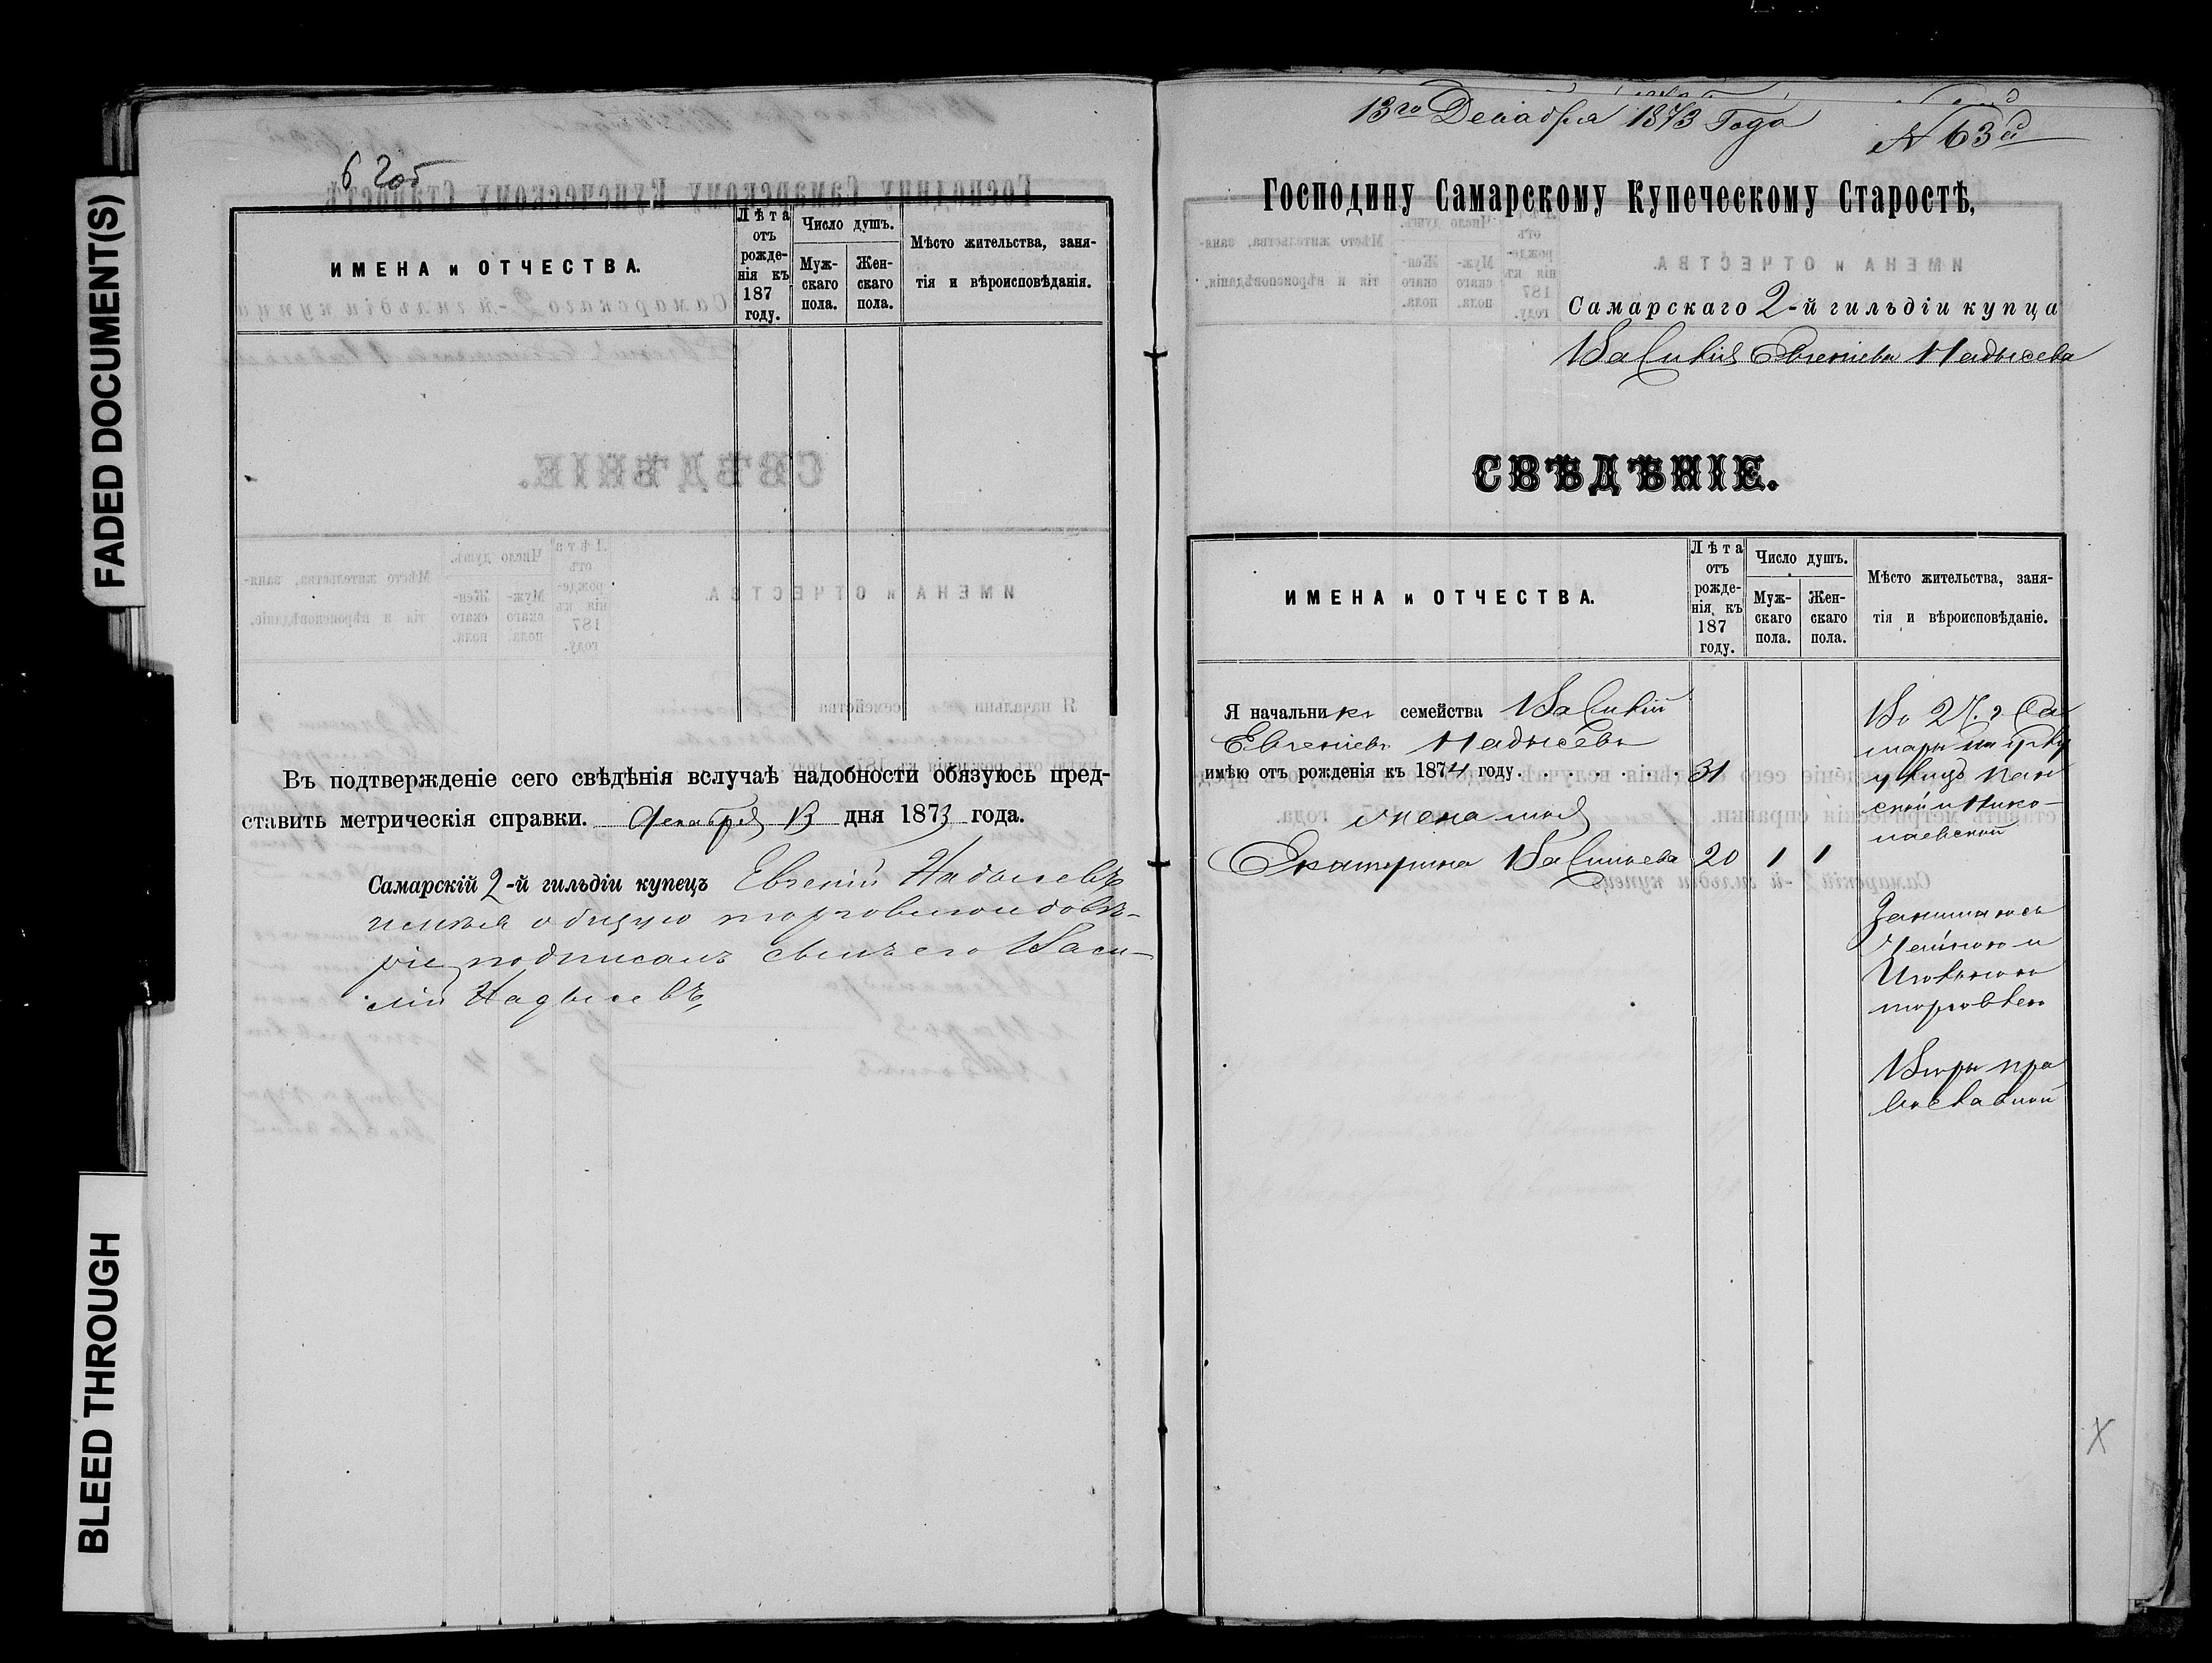 FADED DOCUMENT(S)
BLEED THROUGH
62об
ИМЕНА и ОТЧЕСТВА.
Лѣта отъ рожденія къ 187 году.
Число душъ.
Мужскаго пола.
Женскаго пола.
Мѣсто жительства, заня-
тія и вѣроисповѣданія.
Въ подтвержденіе сего свѣдѣнія вслучаѣ надобности обязуюсь пред-
ставить метрическія справки. Декабря 13 дня 1873 года.
Самарскій 2-й гильдіи купецъ Евгеній Надысевъ
общую
подписалъ сынъ его Васи-
лій Надысевъ
13го Декабря 1873 Года
N 63й
Господину Самарскому Купеческому Старостѣ,
Самарскаго 2-й гильдіи купца
Василія Евгеніева Надысева
СВѢДѢНІЕ.
ИМЕНА и ОТЧЕСТВА.
Лѣта
отъ
рожде-
нія къ
187
году.
Число душъ.
Муж-
скаго
пола.
Жен-
скаго
пола.
Мѣсто жительства, заня-
тія и вѣроисповѣданіе.
Я начальникъ семейства Василій
Евгеніевъ Надысевъ
имѣю отъ рожденія къ 1874 году. 31
жена моя
Екатерина Васильева 20 1 1
Во 2 Ч. г Са
мары на углу
улицъ Пан
ской и Нико-
лаевской
Занимаюсь
Чайною и
торговлею
Вѣры пра
вославной